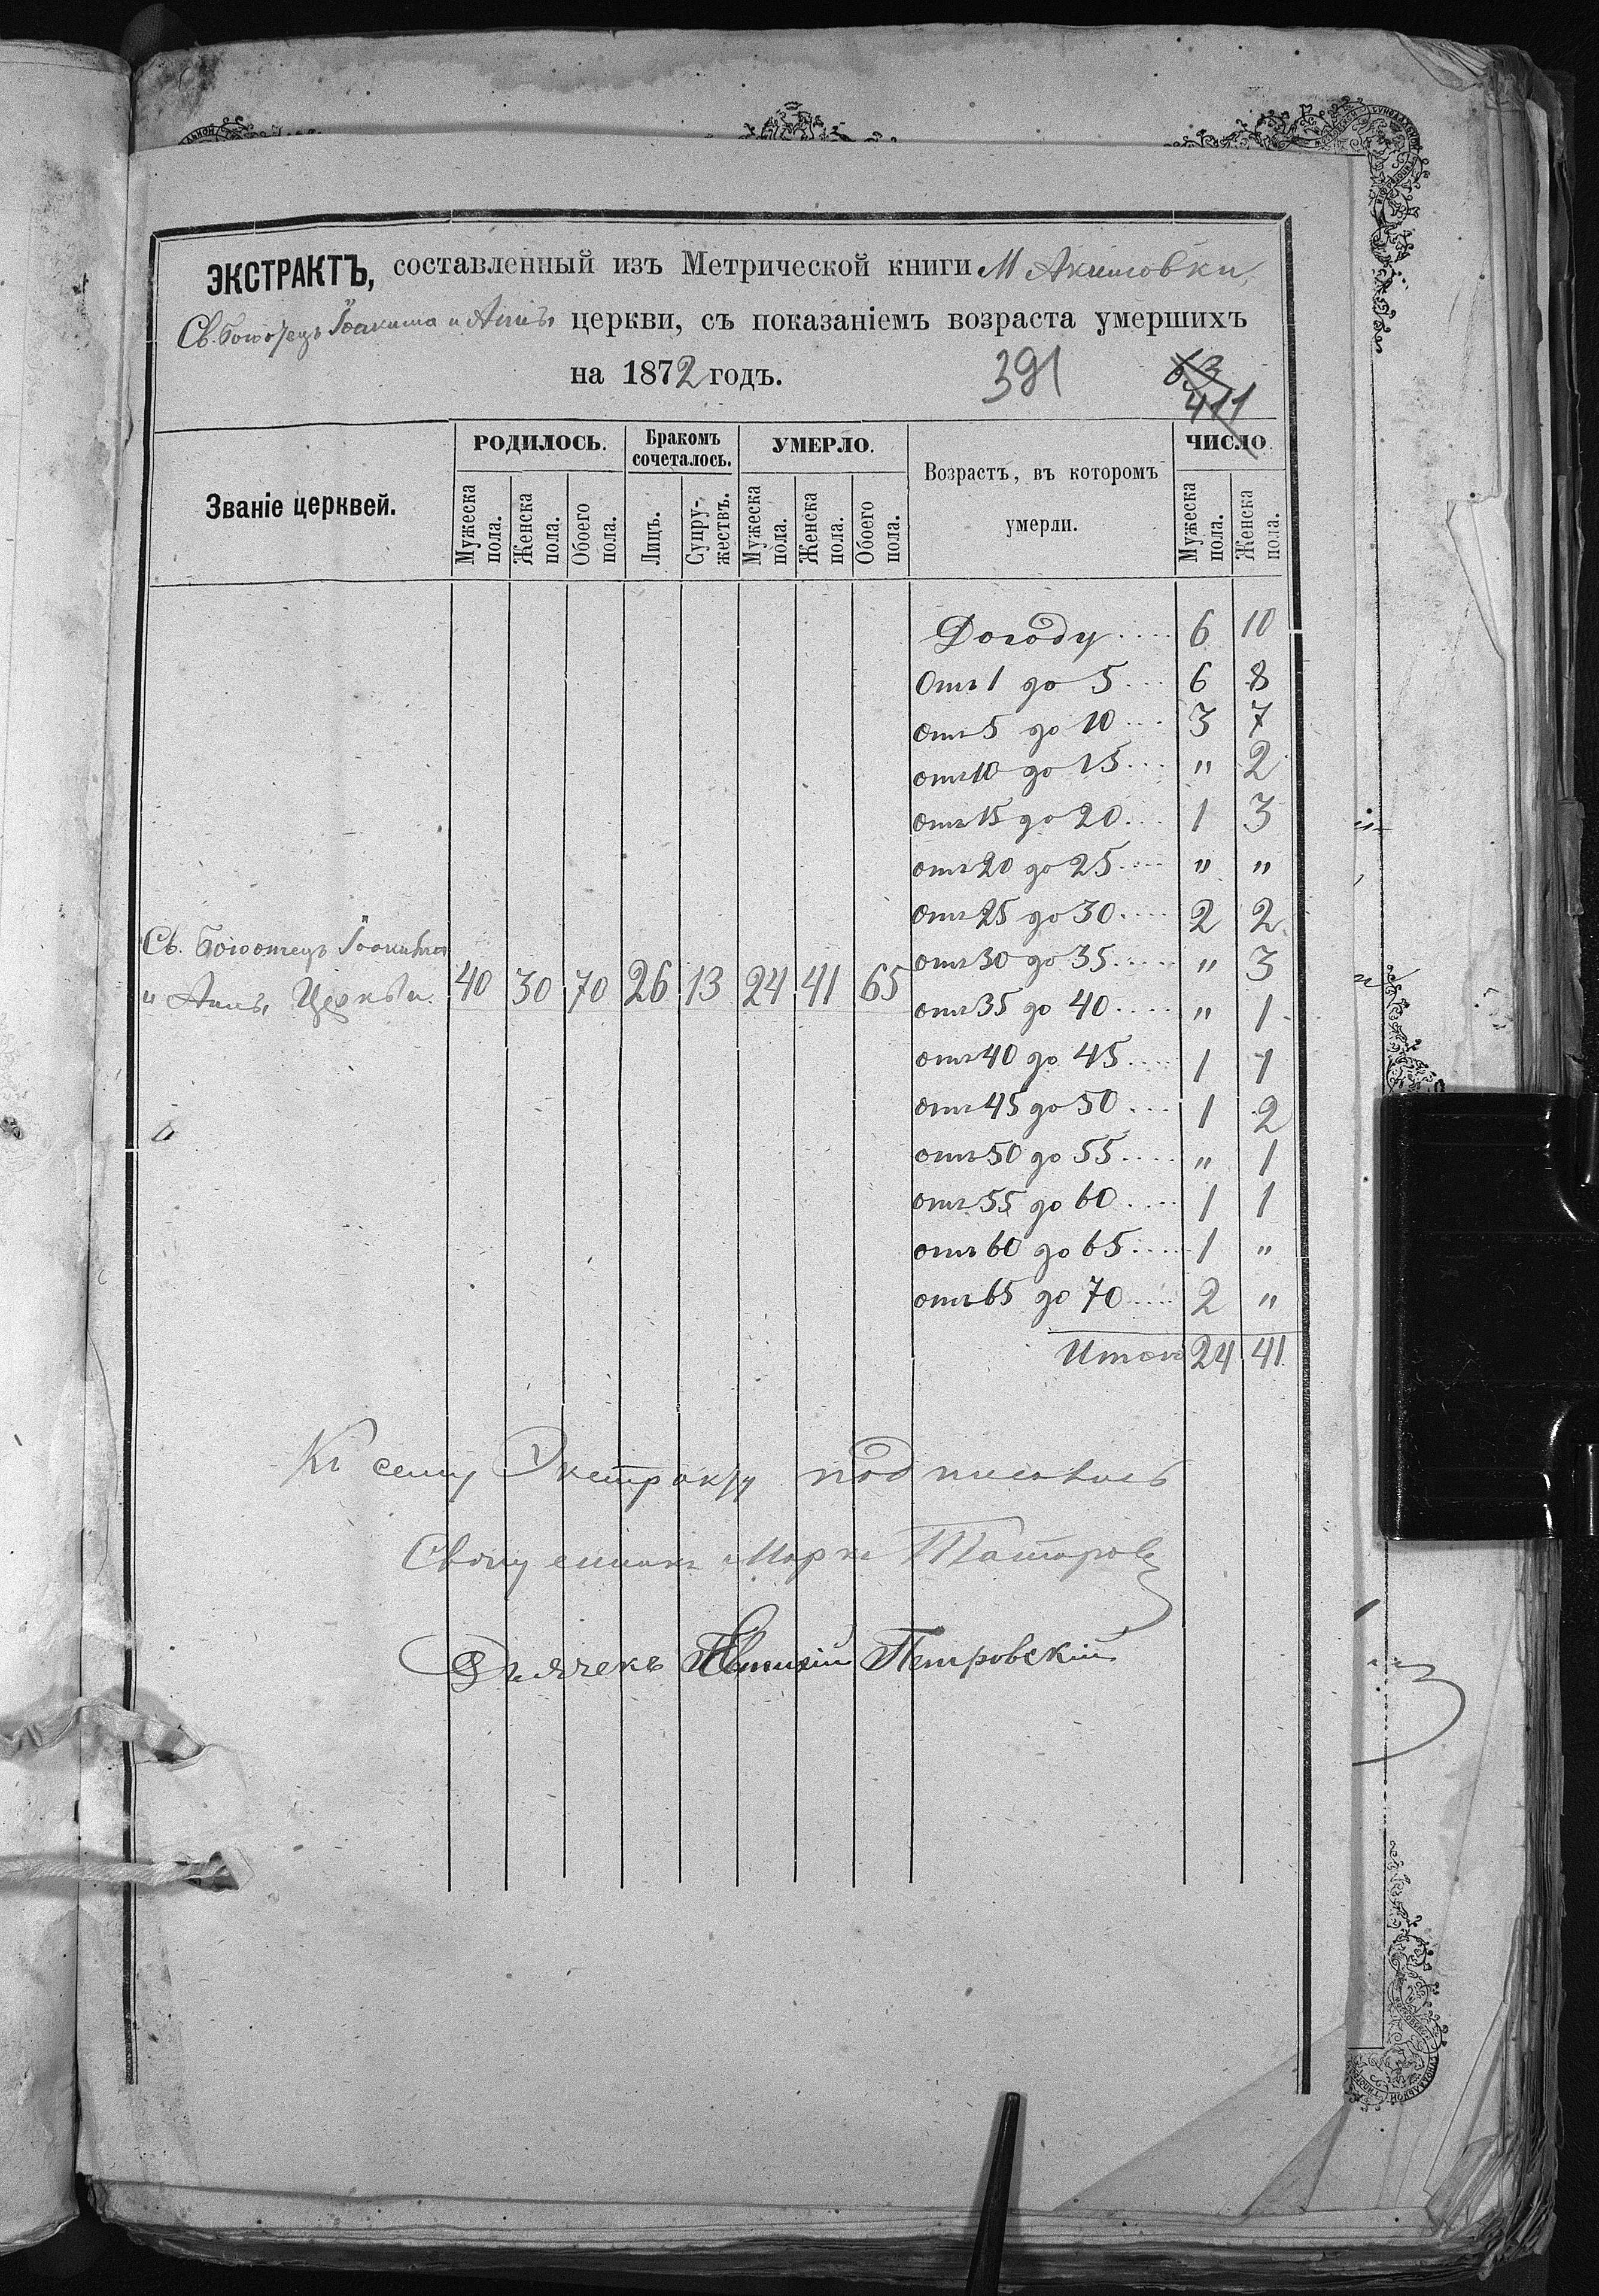 ЭКСТРАКТЪ, составленный изъ Метрической книги М Акимовки,
Св. Богоотецъ Іоакима и Анны церкви, съ показаніемъ возраста умершихъ
на 1872 годъ.
391
63
411
Званіе церквей.
РОДИЛОСЬ.
Бракомъ сочеталось.
УМЕРЛО.
Возрастъ, въ которомъ умерли.
ЧИСЛО.
Мужеска пола.
Женска пола.
Обоего пола.
Лицъ.
Супружествъ.
Мужеска пола.
Женска пола.
Обоего пола.
Мужеска пола.
Женска пола.
До году .... 6 10
Отъ 1 до 5 ... 6 8
отъ 5 до 10 ... 3 7
отъ 10 до 15 ... " 2
отъ 15 до 20 ... 1 3
отъ 20 до 25 .... " "
отъ 25 до 30 .... 2 2
отъ 30 до 35 ..... " 3
отъ 35 до 40 ..... " 1
отъ 40 до 45 .... 1 1
отъ 45 до 50 .... 1 2
отъ 50 до 55 ..... " 1
отъ 55 до 60 ..... 1 1
отъ 60 до 65 ..... 1 "
отъ 65 до 70 ..... 2 "
Итого 24 41
Св. Богоотецъ Іоакима
и Анны Церкви. 40 30 70 26 13 24 41 65
Къ сему Экстракту подписались
Священникъ Марко Татаровъ
Дьячекъ Петровскій